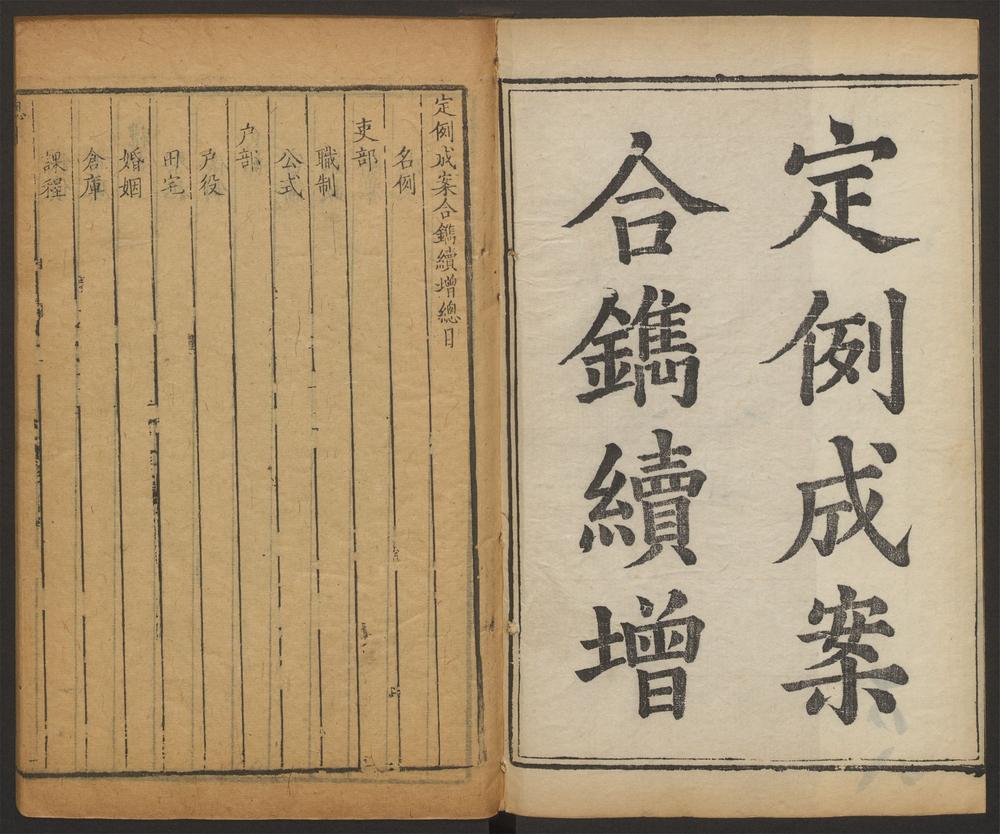 定例成案
合鐫續增
定例成案合鐫續增總目
名例
吏部
職制
公式
户部
户役
田宅
婚姻
倉庫
課程